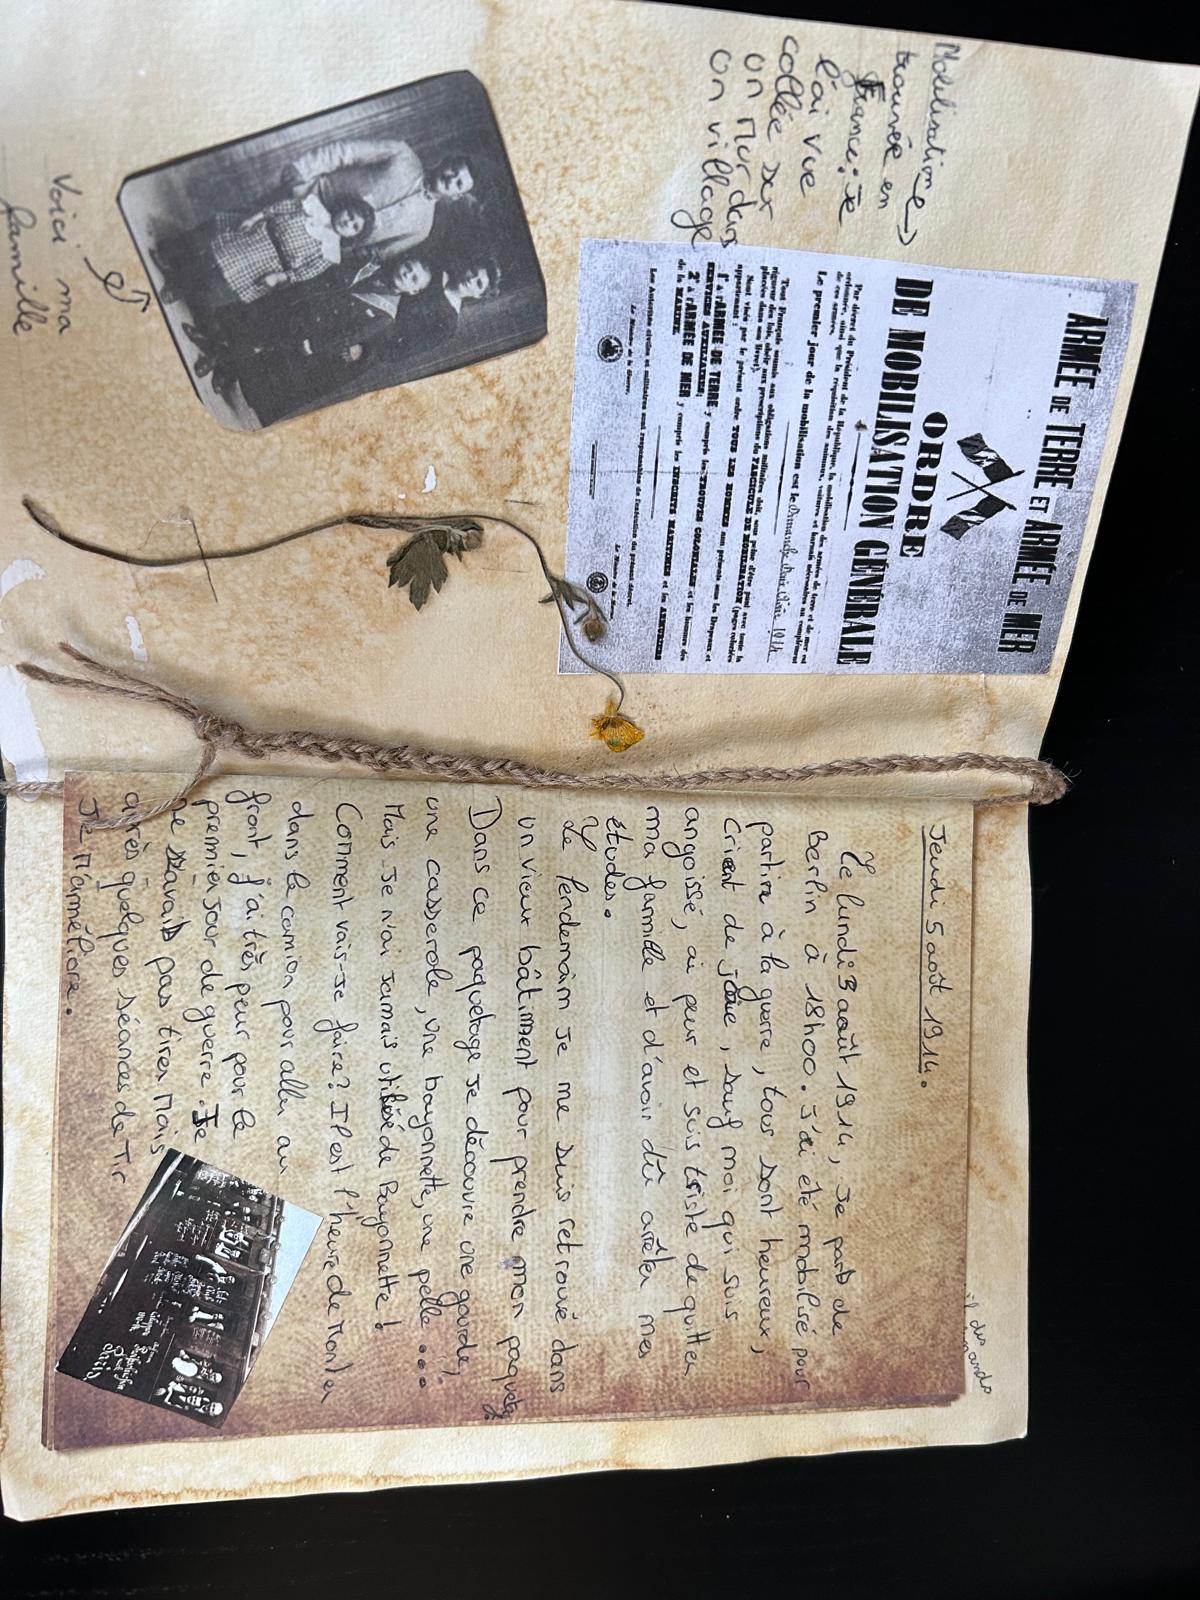 Mobilisation
trouvée en
France : Je
l'ai vue
collée sur
un mur dans
un village
ARMÉE DE TERRE ET ARMÉE DE MER
ORDRE
DE MOBILISATION GÉNÉRALE
Par décret du Président de la République, la mobilisation des armées de terre et de mer est
ordonnée, ainsi que la réquisition des animaux, voitures et harnais nécessaires au complément
de ces armées.
Le premier jour de la mobilisation est le
Tout Français soumis aux obligations militaires doit, sous peine d'être puni avec toute la
rigueur des lois, obéir aux prescriptions du FASCICULE DE MOBILISATION (pages coloriées
placées dans son livret).
Sont visés par le présent ordre TOUS LES HOMMES non présents sous les Drapeaux et
appartenant :
1° à l'ARMÉE DE TERRE y compris les TROUPES COLONIALES et les hommes des
SERVICES AUXILIAIRES;
2° à l'ARMÉE DE MER y compris les INSCRITS MARITIMES et les ARMURIERS
de la MARINE.
Les Autorités civiles et militaires sont responsables de l'exécution du présent décret.
Le Ministre de la Guerre,
Le Ministre de la Marine,
Voici ma
famille
Jeudi 5 août 1914.
Le lundi 3 août 1914, Je part de
Berlin à 18h00. J'ai été mobilisé pour
partir à la guerre, tous sont heureux,
Crient de joie, sauf moi qui suis
angoissé, ai peur et suis triste de quitter
ma famille et d'avoir dû arrêter mes
études.
Le lendemain je me suis retrouvé dans
un vieux bâtiment pour prendre mon paquetage.
Dans ce paquetage je découvre une gourde,
une casserole, une bayonnette, une pelle ...
Mais je n'ai jamais utilisé de Bayonnette !
Comment vais-je faire ? Il est l'heure de monter
dans le camion pour aller au
front, j'ai très peur pour le
premier jour de guerre. Je
ne savais pas tirer Mais
après quelques séances de Tir
Je m'améliore.